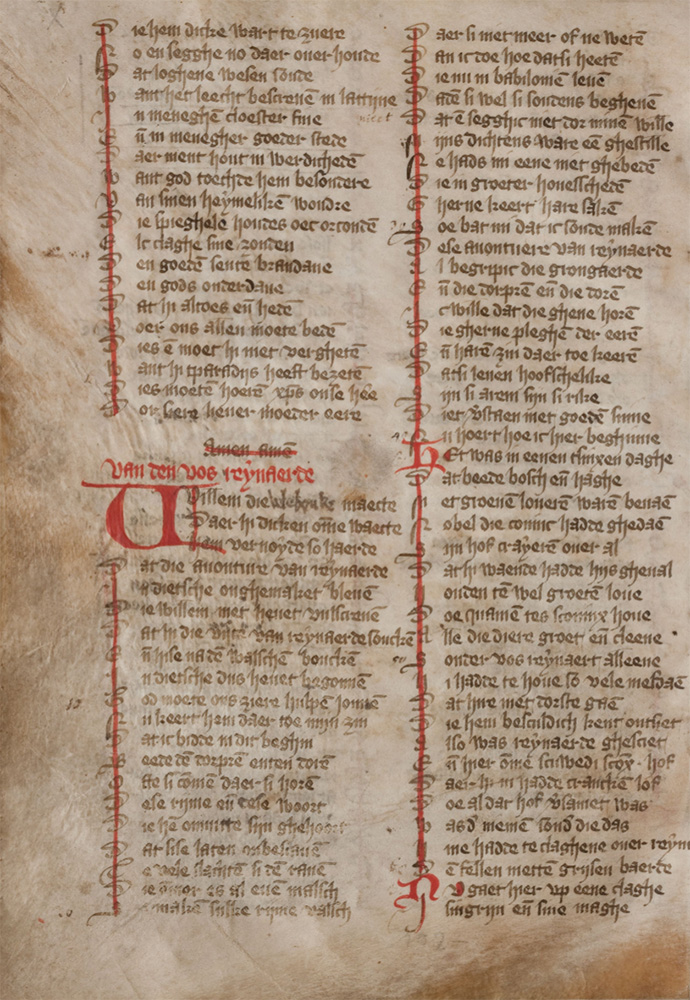 Die hem dicke wart te zuere
So en segghe no daer ouer houde
Dat loghene wesen soude
Want het leecht bescreuē in lattijne
In meneghē cloester fine
Eñ in menegher goeder stede
Daer ment hout in werdichedē
Want god toechde hem besondere
Van sinen heymelikē wondre
Die spieghelē houdes oec orcondē
Ic claghe sine zonden
Den goedē sente brandane
Den gods onderdane
Dat hi altoes eñ hedē
Voer ons allen moete bedē
Dies ē moet hi niet verghetē
Want hi tparadijs heeft bezetē
Dies moetē hoerē xp̄s onse hēe
Dor siere lieuer moeder eere
Amen amē
Van den vos reynaerde
Willem die vele bouke maecte
Daer hi dicken om̄e waecte
hem vernoyde so haerde
Dat die auonture van reynaerde
In dietsche onghemaket bleuē
Die willem niet heuet vulscreuē
Dat hi die vijte van reynaerde soucken
Eñ hise na dē walschē bouckē
In dietsche dus heuet begonnē
God moete ons ziere hulpē jonnē
Nu keert hem daer toe mijn zin
Dat ic bidde in dit beghin
Beede dē dorprē enten dorē
Ofte si comē daer si horē
Dese rijme eñ dese woort
Die hē onnutte sijn ghehoort
Dat sise laten onbescauē
Te vele slachtē si dē rauē
Die em̄er es al euē malsch
Si makē sulke rijme valsch
Daer si niet meer of ne wetē
Dan ic doe hoe datsi heetē
Die nu in babilonien leuē
Dadē si wel si soudens begheuē
Dat ē segghic niet dor minē wille
Mijns dichtens ware eē ghestille
Ne hads mi eene niet ghebedē
Die in groeter houesschedē
Gherne keert hare sakē
Soe bat mi dat ic soude makē
Dese auontuere van reynaerde
Al begripic die grongaerde
Eñ die dorprē eñ die dorē
Ic wille dat die ghene horē
Die gherne pleghē der eerē
Eñ harē zin daer toe keerē
Datsi leuen hoofschelike
Sijn si arem sijn si rike
Diet v̄staen met goedē sinne
Nu hoert hoe ic hier beghinne
Het was in eenen tsinxen daghe
Dat beede bosch eñ haghe
Met groenē louerē warē beuaē
Nobel die coninc hadde ghedaē
Sijn hof crayerē ouer al
Dat hi waende hadde hijs gheual
Houden tē wel groetē loue
Doe quamē tes sconinx houe
Alle die diere groet eñ cleene
Sonder vos reynaert alleene
Hi hadde te houe so vele mesdaē
Dat hire niet dorste gaē
Die hem besculdich kent ontsiet
Also was reynaerde ghesciet
Eñ hier om̄e scuwedi sconx hof
Daer hi in hadde cranckē lof
Doe al dat hof v̄samet was
Was d̄ niemē sond̄ die das
Hine hadde te claghene ouer reynaerde
Dē fellen metten grijsen baerde
Nu gaet hier vp eene claghe
Isingrijn eñ sine maghe